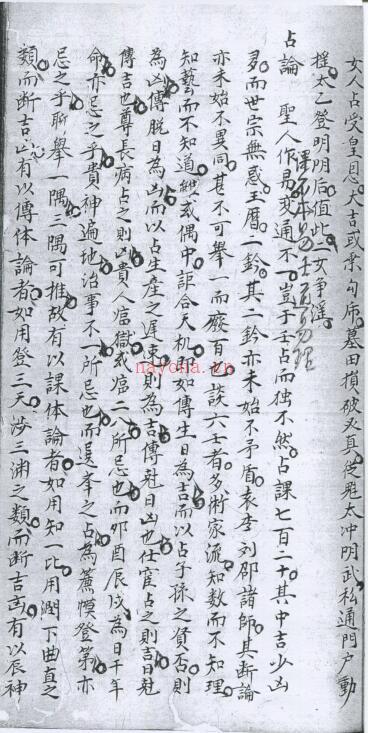 女人占受皇恩大吉或朱勾席墓田損破及真後鬼太冲明武私通門户動
搖太乙登明明后值此二女争淫
占論 聖人作易変通不一豈于壬占而独不然占課七百二十其中吉少凶
多而世宗無惑玉曆二鈐其二鈐亦未始不矛盾袁李刘邵諸師其断論
亦未始不異同甚不可舉一而廢百也談六壬者多術家流知数而不知理
知藝而不知道或偶中詎合天机即如傳生日為吉而以占子孫之賢否則
為凶傳脱日為凶而以占生産之遲速則為吉傳尅日凶也仕宦占之則吉日尅
傳吉也尊長病占之則凶貴人临獄或临二八所忌也而卯酉辰戌為日干年
命亦忌之乎貴神遍地治事不一所忌也而遥奎之占為簾幙登第亦
忌之乎聊舉一隅三隅可推故有以課体論者如用知一比用潤下曲直之
類而断吉凶有以傳体論者如用登三天涉三淵之類而断吉凶有以辰神
nayona.cn